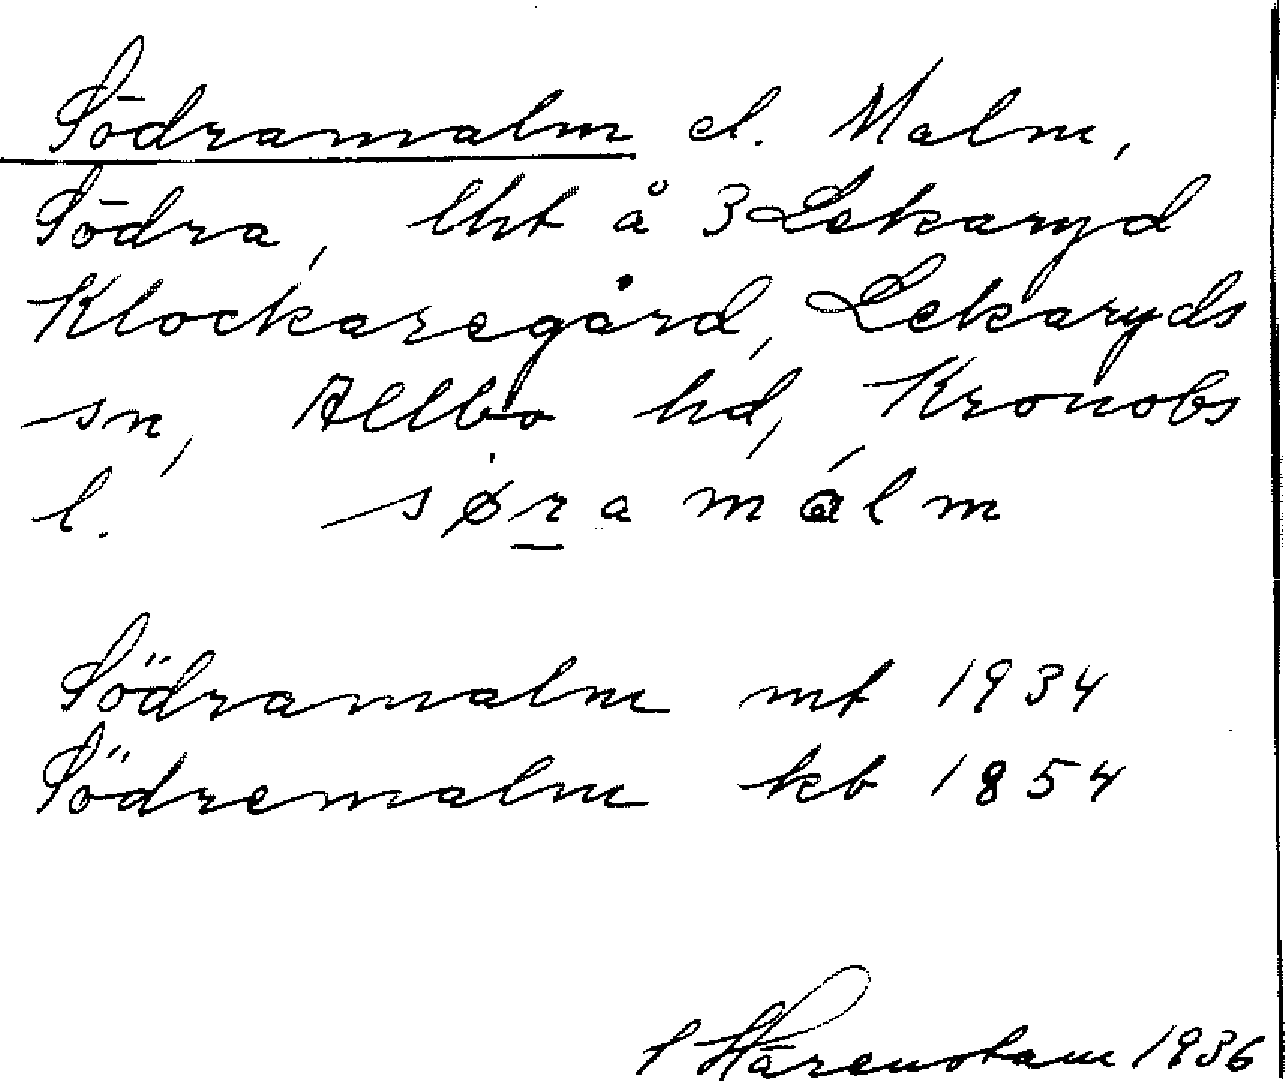 Södramalm el. Malm,
Södra, lht å 3 Lekaryd
Klockaregård, Lekaryds
sn, Allbo hd, Kronobs
l. sø̇r̲a málm
Södramalm mt 1934
Södremalm kb 1854
Härenstam 1936